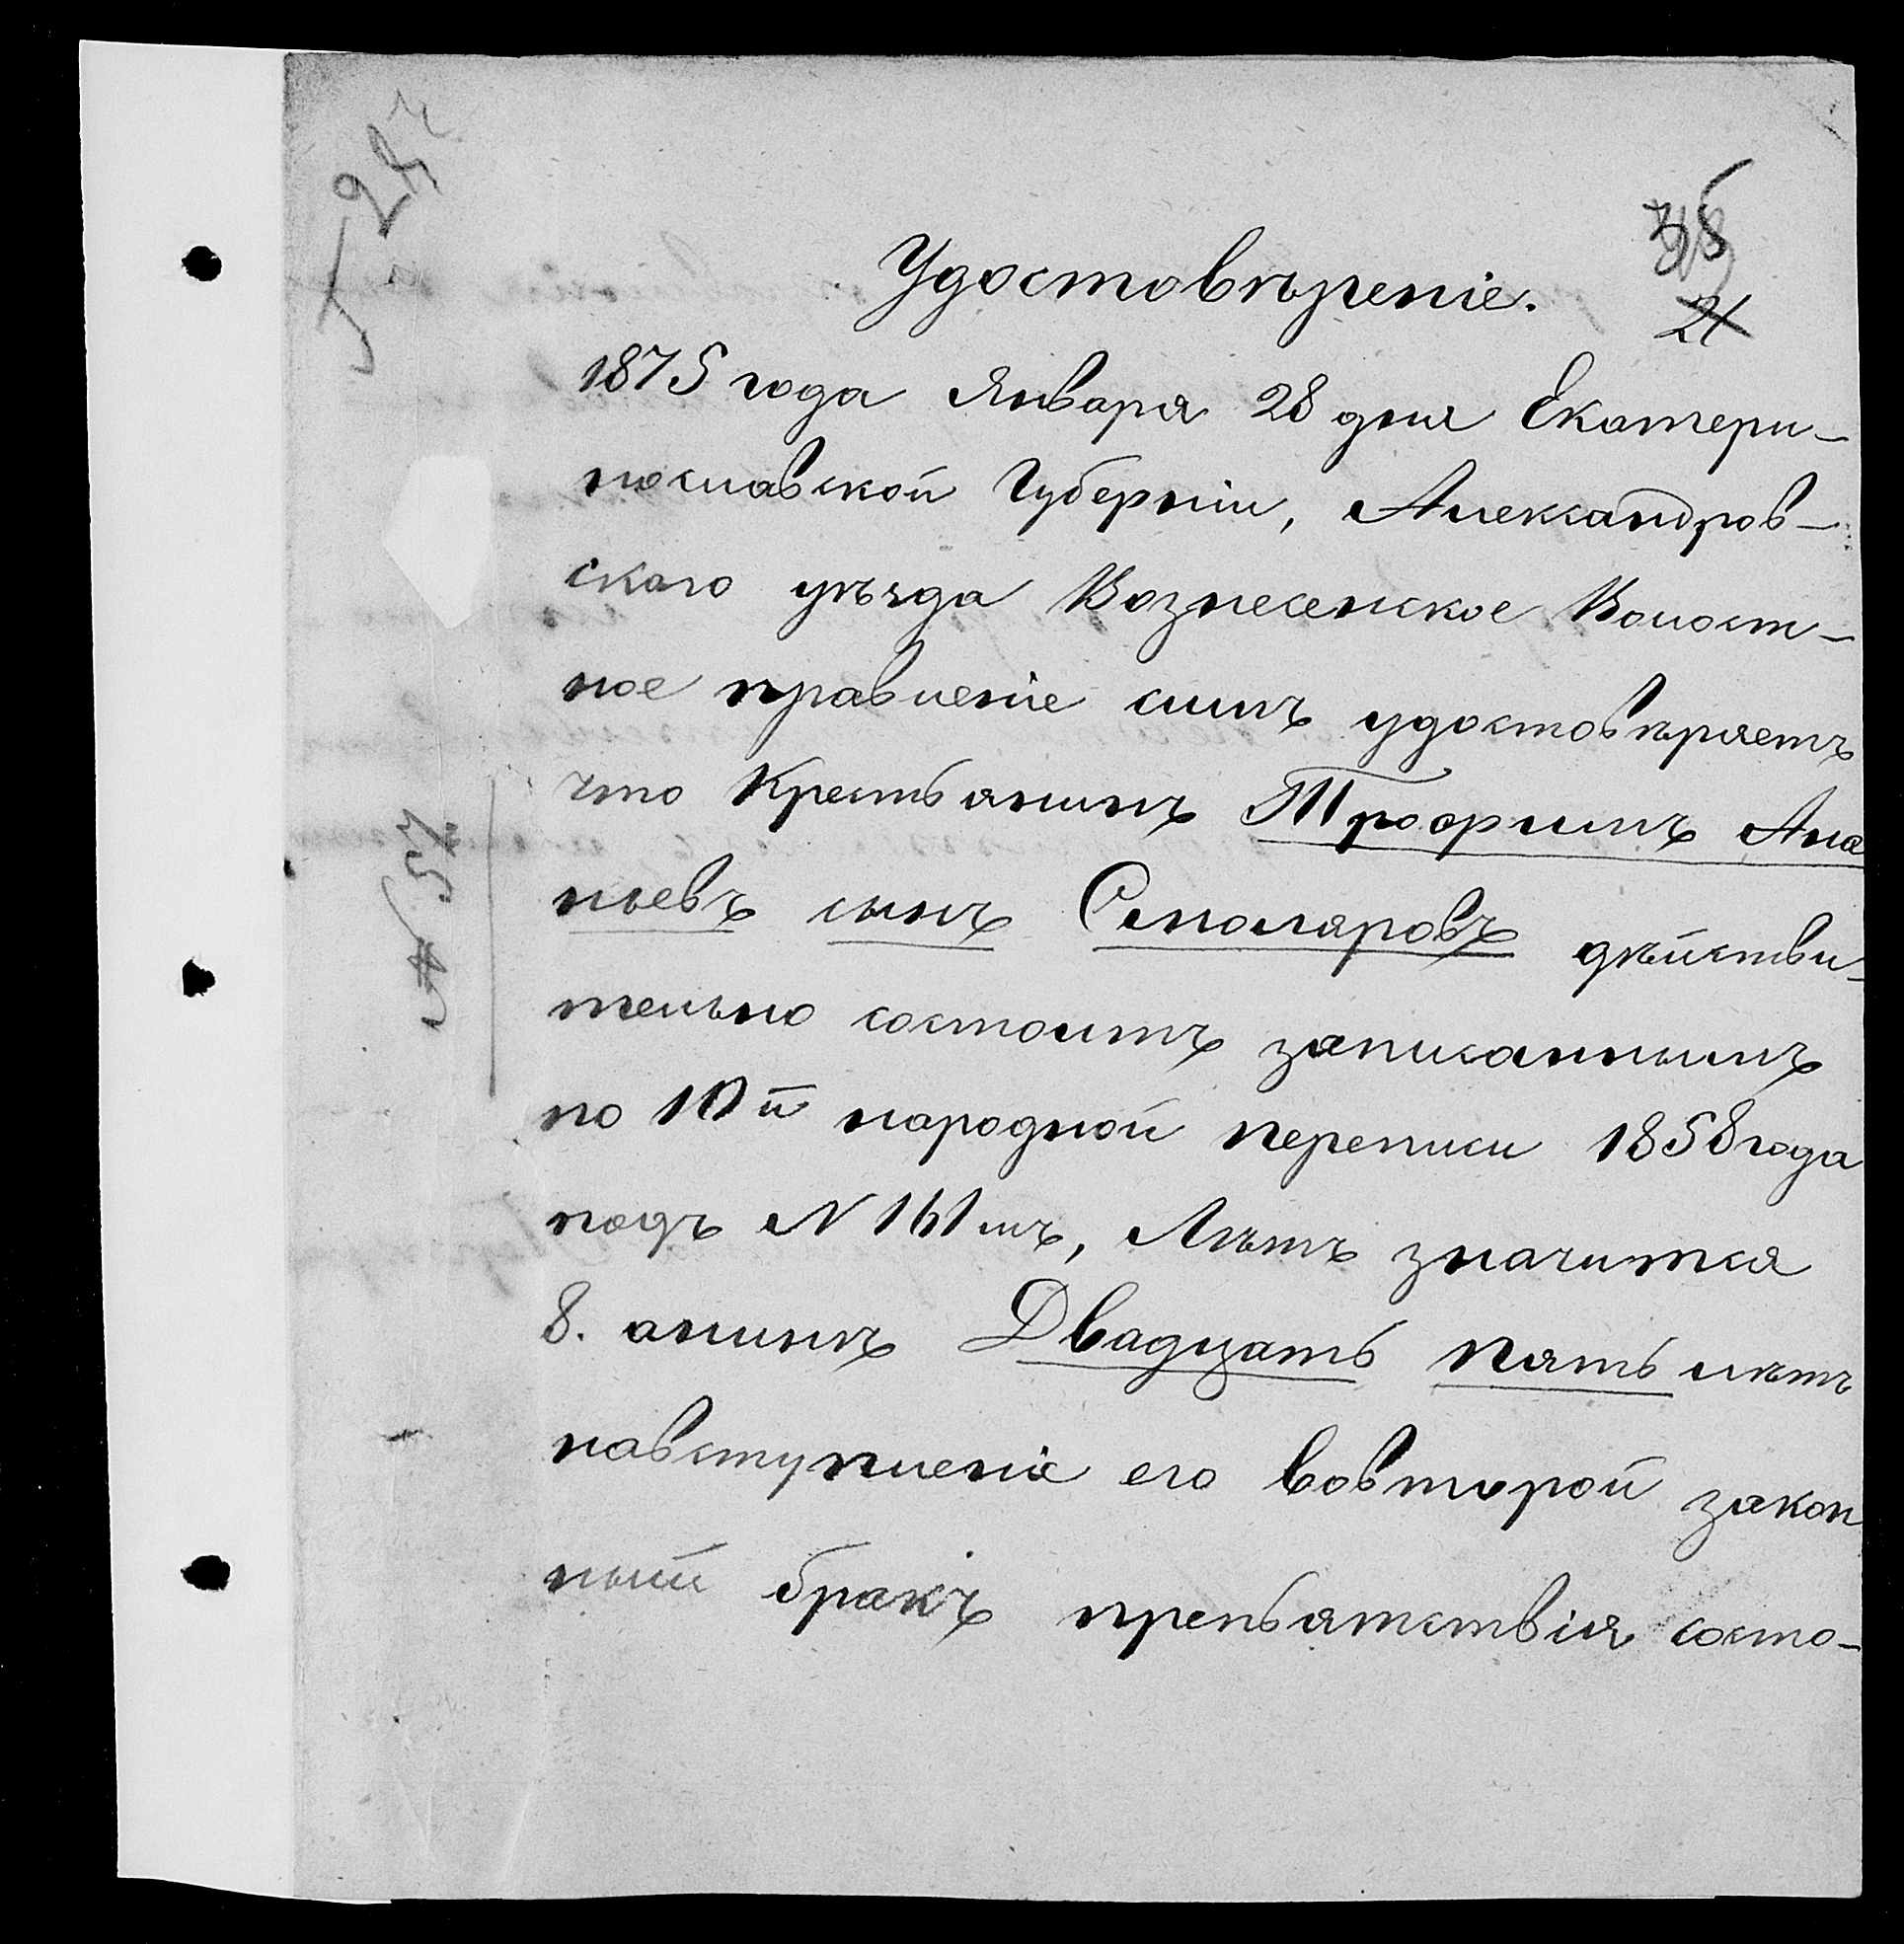 Удостовѣреніе.
21
1875 года Января 28 дня Екатери-
нославской Губерніи, Александров-
скаго уѣзда Вознесенское Волост-
ное правленіе симъ удостовѣряетъ
что Крестьянинъ Трофимъ Ана
ньевъ сынъ Столяровъ дѣйстви-
тельно состоитъ записаннымъ
по 10й народной переписи 1858 года
подъ N 161мъ, Лѣтъ значится
8. анинъ Двадцать пять лѣтъ
навступленіе его вовторой закон
ный бракъ препьятствія состо-
№ 57